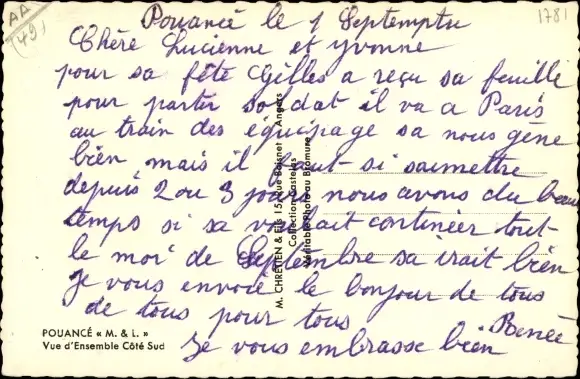 AA
(491
1781
Pouancé le 1 Septemptre
Chère Lucienne et yvonne
pour sa fête Gilles a reçu sa feuille
pour partir soldat il va a Paris
au train des équipage sa nous gène
bien mais il faut si saumettre
depuis 2 ou 3 jours nous avons du beau
temps si sa voulait continéer tout
le moi de Septembre sa irait bien
je vous envoie le bonjour de tous
de tous pour tous
Renée
Je vous embrasse bien
POUANCÉ « M. & L. »
Vue d'Ensemble Côté Sud
M. CHRÉTIEN & Fils 15, Rue Boisnet - Angers
Collection Castelas
Véritable Photo au Bromure